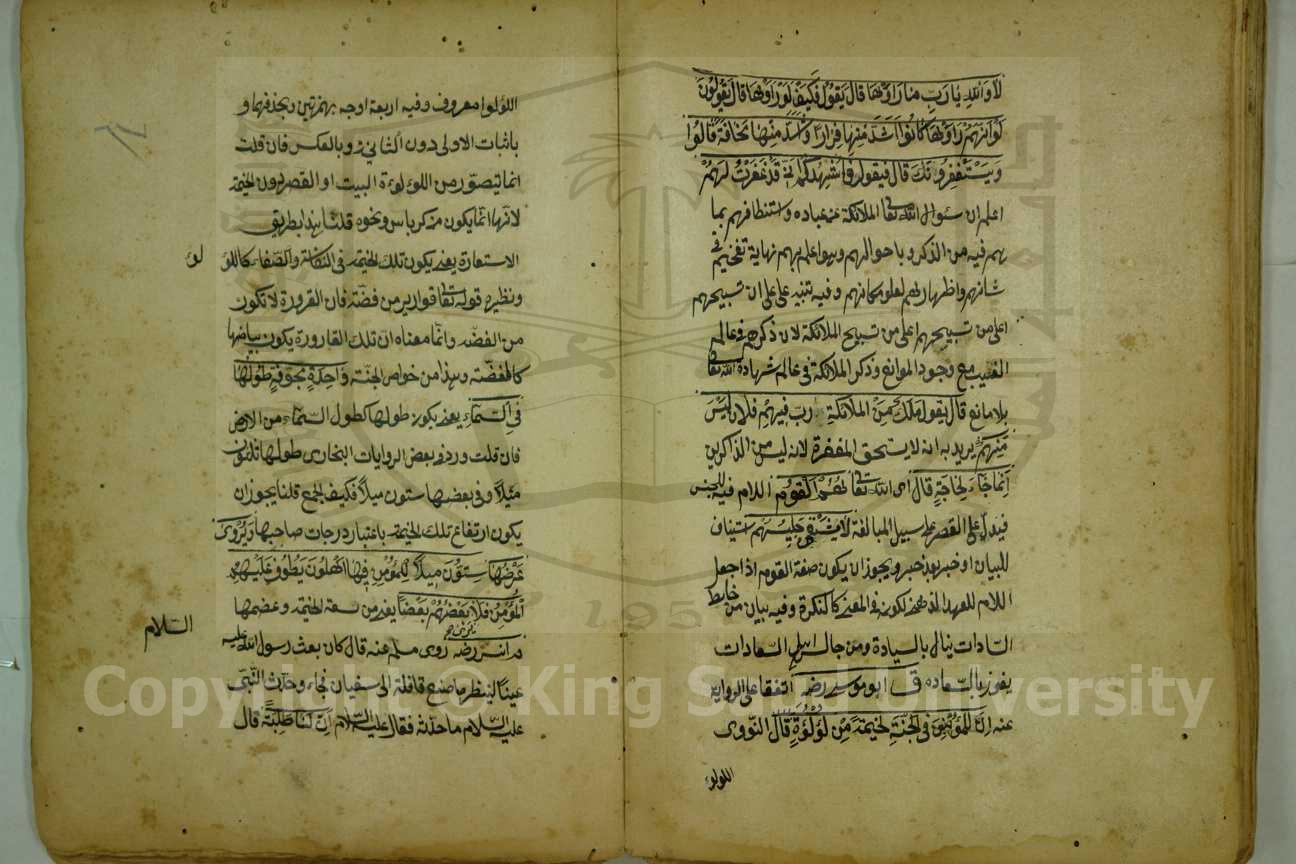 لا والله يا رب ما راوها قال يقول فكيف لو راوها قال يقولون
لو انهم راوها كانوا اشد منها فرارا واشد منها مخافة قالوا
ويستغفرونك قال فيقول فاشهدكم اني قد غفرت لهم
اعلم ان سؤال الله تعا الملائكة عن عباده واستنطاقهم بما
هم فيه من الذكر وباحوالهم وهو اعلم بهم نهاية تفخيم في
شانهم واظهار لهم لعلو مكانهم وفيه تنبيه على على ان تسبيحهم
اعلى من تسبيحهم اعلى من تسبيح الملائكة لان ذكرهم في عالم
الغيب مع وجود الموانع وذكر الملائكة في عالم شهادة الله تعا
بلا مانع قال يقول ملك من الملائكة رب فيهم فلان ليس
منهم يريد به انه لا يستحق المغفرة لانه ليس من الذاكرين
انما جاء لحاجة قال اى الله تعا هم القوم اللام فيه للجنس
فيدل على القصر على سبيل المبالغة لا يشقى جليسهم استيناف
للبيان او خبر بعد خبر ويجوز ان يكون صفة القوم اذا جعل
اللام للعهد الذهني لكونه في المعنى كالنكرة وفيه بيان من خالط
السادات ينال بالسيادة ومن جالس اهل السعادات
يفوز بالسعاده ق ابو موسى رضه اتفقا على الرواية
عنه ان للمؤمن في الجنة لخيمة من لؤلؤة قال النووى
اللولو
اللؤلوا معروف وفيه اربعة اوجه بهمزتين وبحذفهما و
باثبات الاولى دون الثاني وبالعكس فان قلت
انما يتصور من اللؤلوءة البيت او القصر دون الخيمة
لانها انما يكون من كرباس ونحوه قلنا هذا بطريق
الاستعارة يعنى يكون تلك الخيمة في النفاسة والصفاء كاللؤ
لؤ
ونظيره قوله تعا قوارير من فضة فان القرورة لا تكون
من الفضة وانما معناه ان تلك القارورة يكون بياضها
كالفضة وهذا من خواص الجنة واحدة مجوفة طولها
في السماء يعنى يكون طولها كطول السماء من الارض
فان قلت ورد في بعض الروايات البخارى طولها ثلثون
ميلا وفي بعضها ستون ميلا فكيف الجمع قلنا يجوز ان
يكون ارتفاع تلك الخيمة باعتبار درجات صاحبها ويروى
عرضها ستون ميلا للمؤمن فيها اهلون يطوف عليهم
المؤمن فلا يرى بعضهم بعضا يعنى من سعة الخيمة وعضمها
م انس رضه روى مسلم عنه قال كان بعث رسول الله عليه
السلام
عينا لينظر ما صنع قافلة ابى سفيان فجاء وحدث النبى
عليه السلام ما حدثه فقال عليه السلام ان لنا طلبة قال
Copyright © King Saud University
1957